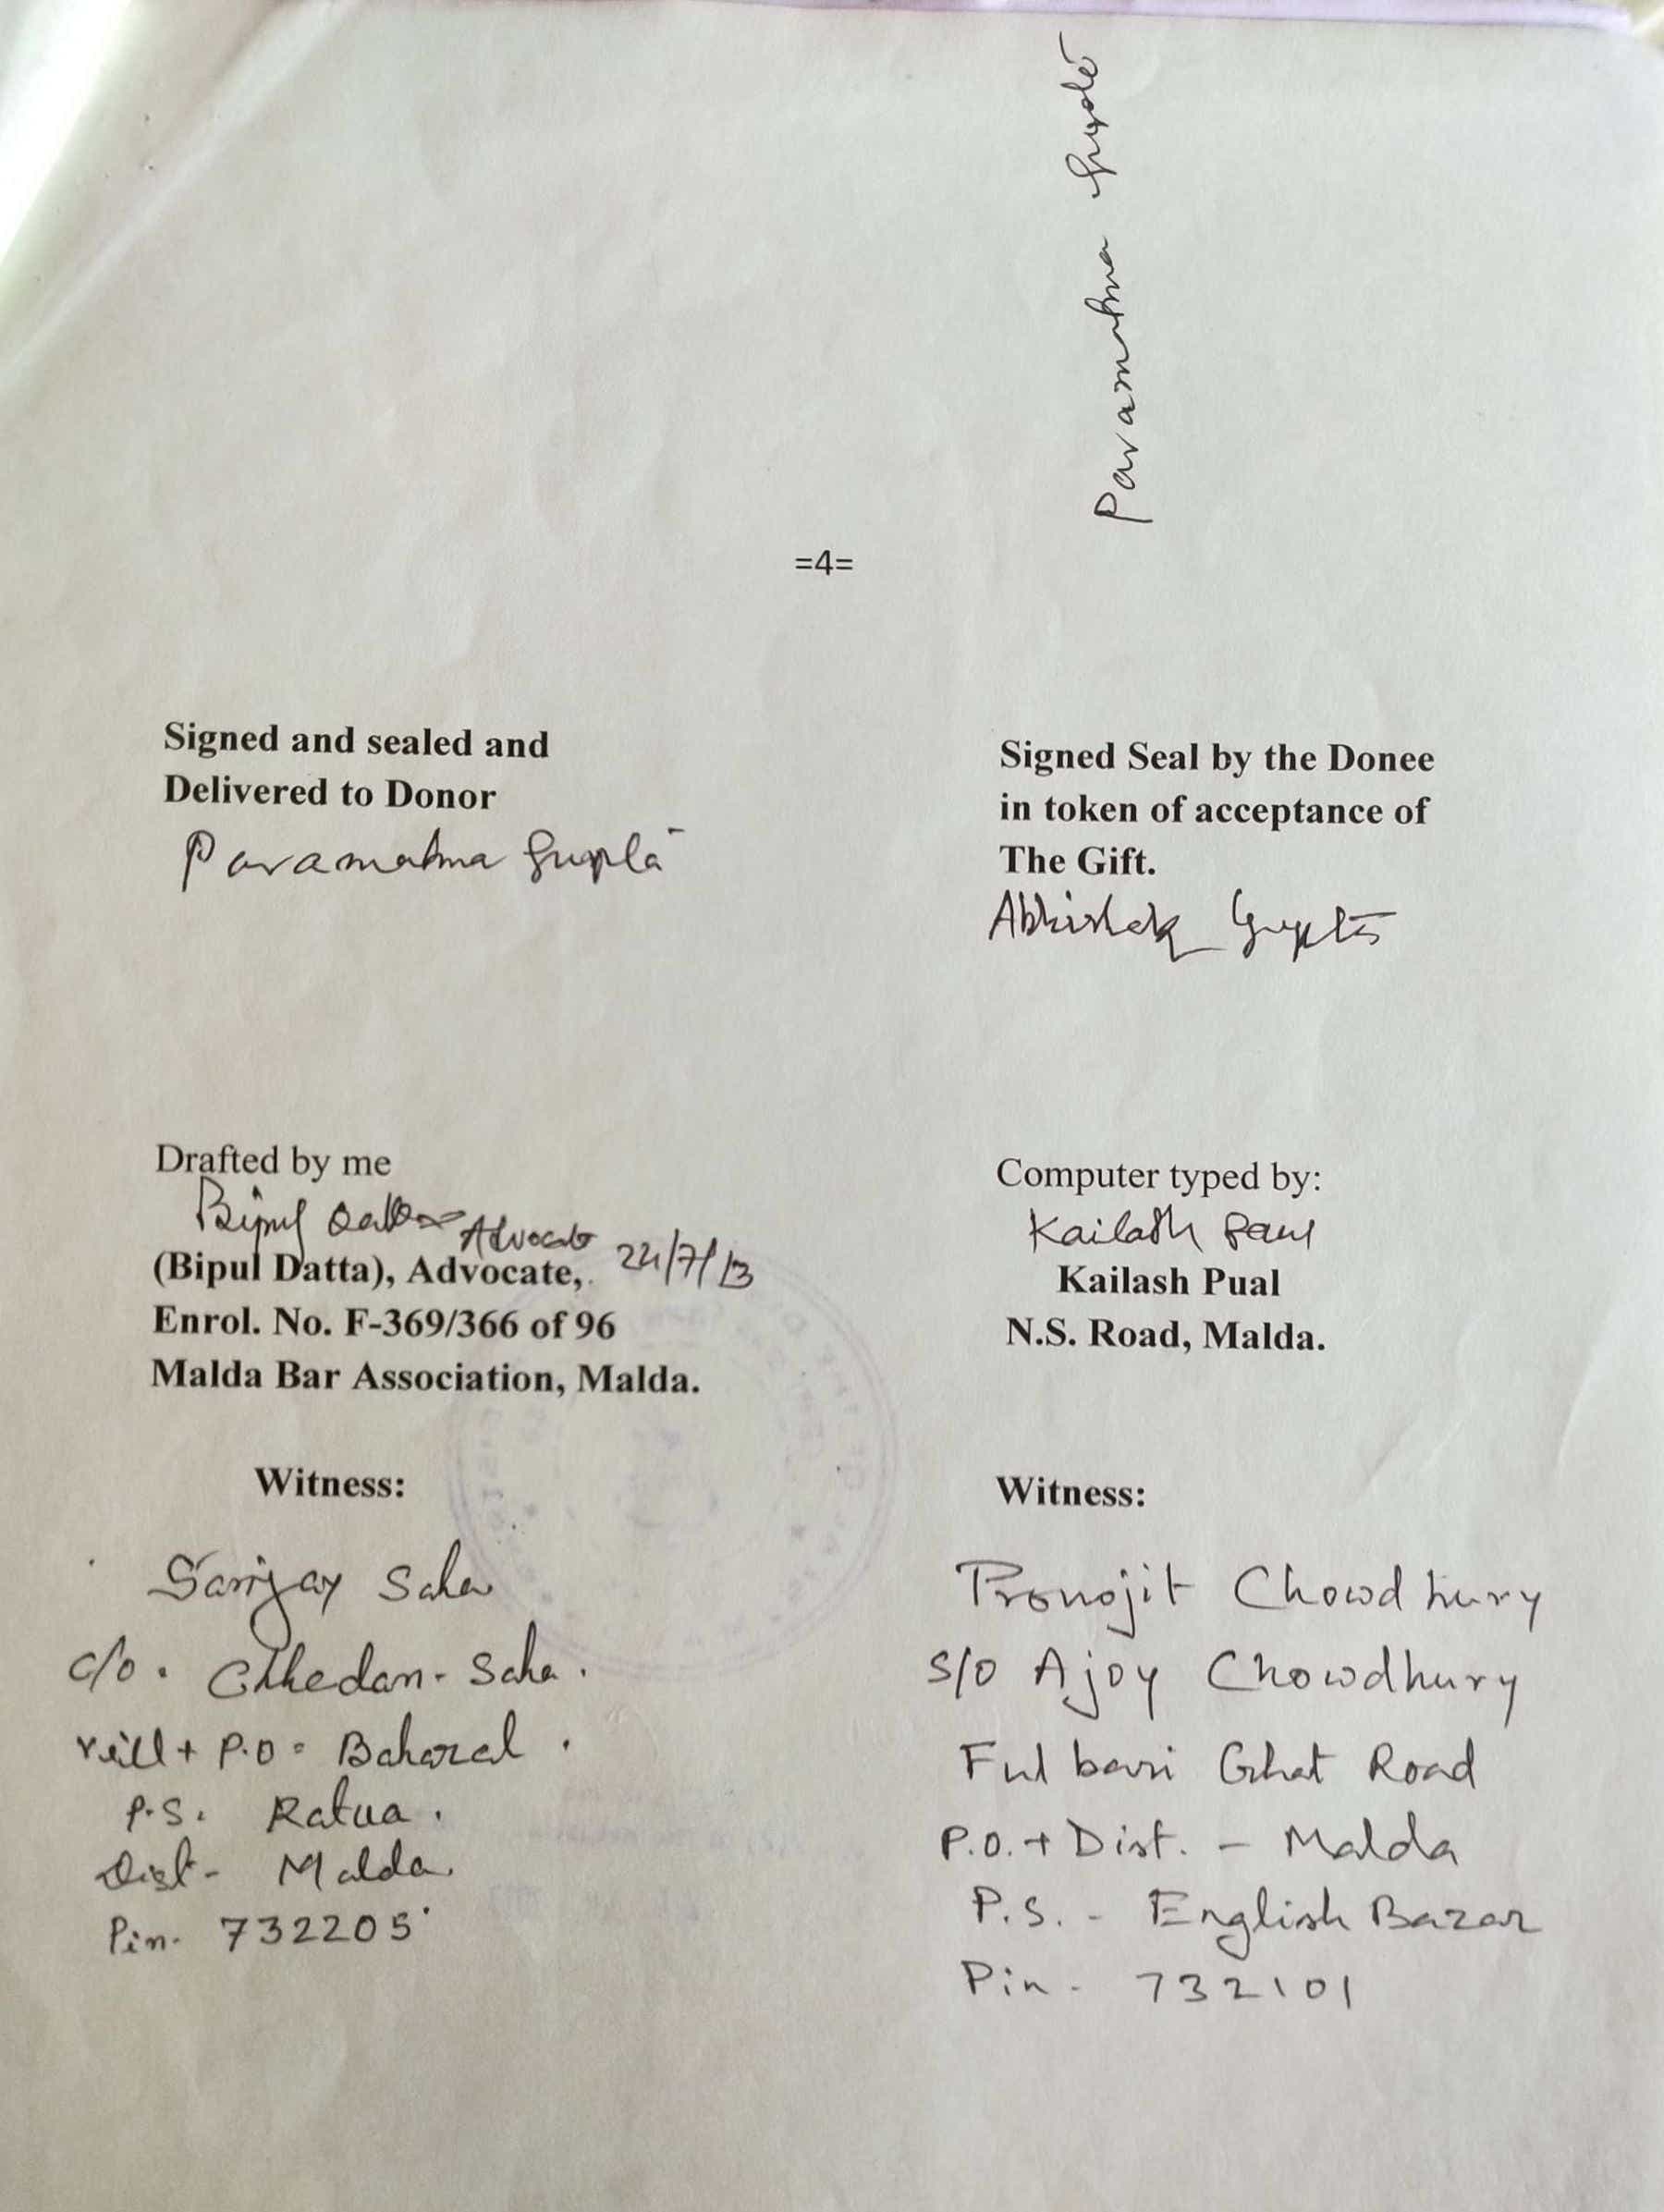 Paramatma Gupta
=4=
Signed and sealed and
Delivered to Donor
Paramatma Gupta
Signed Seal by the Donee
in token of acceptance of
The Gift.
Abhishek Gupta
Drafted by me
Bipul Datta Advocate
(Bipul Datta), Advocate, 24/7/13
Enrol. No. F-369/366 of 96
Malda Bar Association, Malda.
Computer typed by:
Kailash Paul
Kailash Pual
N.S. Road, Malda.
Witness:
Sanjay Saha
c/o. Chhedan - Saha.
vill + P.O = Baharal.
P.S. Ratua.
Dist - Malda.
Pin. 732205
Witness:
Pronojit Chowdhury
S/O Ajoy Chowdhury
Fulbari Ghat Road
P.O. + Dist. - Malda
P.S. - English Bazar
Pin - 732101